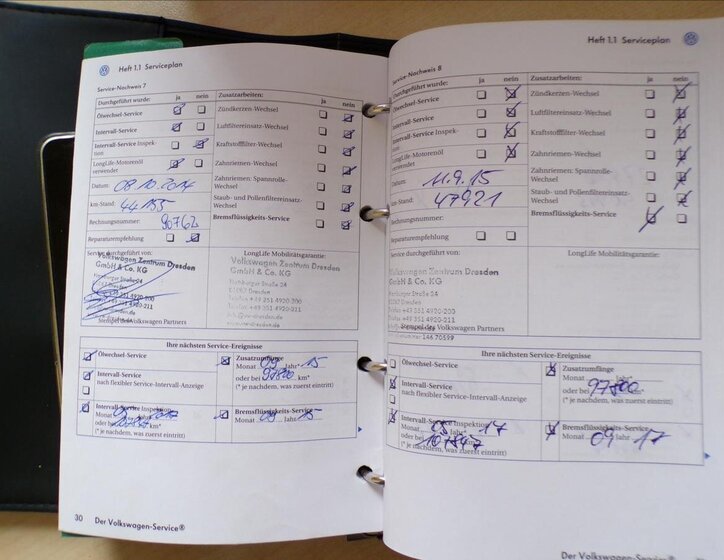 Heft 1.1 Serviceplan
Service-Nachweis 7
Durchgeführt wurde: ja nein
Ölwechsel-Service
Intervall-Service
Intervall-Service Inspek-
tion
LongLife-Motorenöl
verwendet
Datum: 08.10.2014
km-Stand: 44155
Rechnungsnummer: 90762
Reparaturempfehlung
Zusatzarbeiten: ja nein
Zündkerzen-Wechsel
Luftfiltereinsatz-Wechsel
Kraftstofffilter-Wechsel
Zahnriemen-Wechsel
Zahnriemen: Spannrolle-
Wechsel
Staub- und Pollenfiltereinsatz-
Wechsel
Bremsflüssigkeits-Service
Service durchgeführt von:
Volkswagen Zentrum Dresden
GmbH & Co. KG
Stempel des Volkswagen Partners
LongLife Mobilitätsgarantie:
Volkswagen Zentrum Dresden
GmbH & Co. KG
Hamburger Straße 24
01157 Dresden
Telefon +49 351 4920-200
Telefax +49 351 4920-211
Ihre nächsten Service-Ereignisse
Ölwechsel-Service
Intervall-Service
nach flexibler Service-Intervall-Anzeige
Intervall-Service Inspektion
Monat Jahr*
oder bei km*
(* je nachdem, was zuerst eintritt)
Zusatzumfänge
Monat 09 Jahr* 15
oder bei km*
(* je nachdem, was zuerst eintritt)
Bremsflüssigkeits-Service
Monat 09 Jahr 15
30 Der Volkswagen-Service®
Heft 1.1 Serviceplan
Service-Nachweis 8
Durchgeführt wurde: ja nein
Ölwechsel-Service
Intervall-Service
Intervall-Service Inspek-
tion
LongLife-Motorenöl
verwendet
Datum: 11.9.15
km-Stand: 47921
Rechnungsnummer:
Reparaturempfehlung
Zusatzarbeiten: ja nein
Zündkerzen-Wechsel
Luftfiltereinsatz-Wechsel
Kraftstofffilter-Wechsel
Zahnriemen-Wechsel
Zahnriemen: Spannrolle-
Wechsel
Staub- und Pollenfiltereinsatz-
Wechsel
Bremsflüssigkeits-Service
Service durchgeführt von:
Volkswagen Zentrum Dresden
GmbH & Co. KG
Hamburger Straße 24
01157 Dresden
Telefon +49 351 4920-200
Telefax +49 351 4920-211
Stempel des Volkswagen Partners
146 70599
LongLife Mobilitätsgarantie:
Ihre nächsten Service-Ereignisse
Ölwechsel-Service
Intervall-Service
nach flexibler Service-Intervall-Anzeige
Intervall-Service Inspektion
Monat 09 Jahr* 17
oder bei 107847 km*
(* je nachdem, was zuerst eintritt)
Zusatzumfänge
Monat Jahr*
oder bei 97800 km*
(* je nachdem, was zuerst eintritt)
Bremsflüssigkeits-Service
Monat 09 Jahr 17
Der Volkswagen-Service®